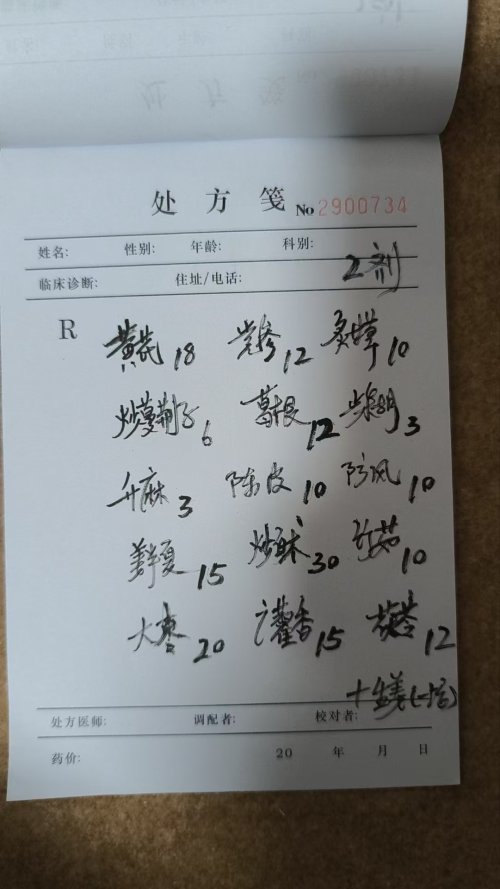 处方笺 No 2900734
姓名: 性别: 年龄: 科别:
临床诊断: 住址/电话: 2剂
R 黄芪 18 党参 12 炙甘草 10
炒蔓荆子 6 葛根 12 柴胡 3
升麻 3 陈皮 10 防风 10
姜半夏 15 炒白术 30 竹茹 10
大枣 20 广藿香 15 茯苓 12
+生姜(一块)
处方医师: 调配者: 校对者:
药价: 20 年 月 日